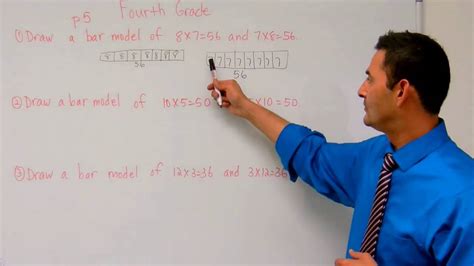 p5 Fourth Grade
① Draw a bar model of 8×7=56 and 7×8=56.
8 8 8 8 8 8 8 7 7 7 7 7 7 7
56 56
② Draw a bar model of 10×5=50 ×10=50.
③ Draw a bar model of 12×3=36 and 3×12=36